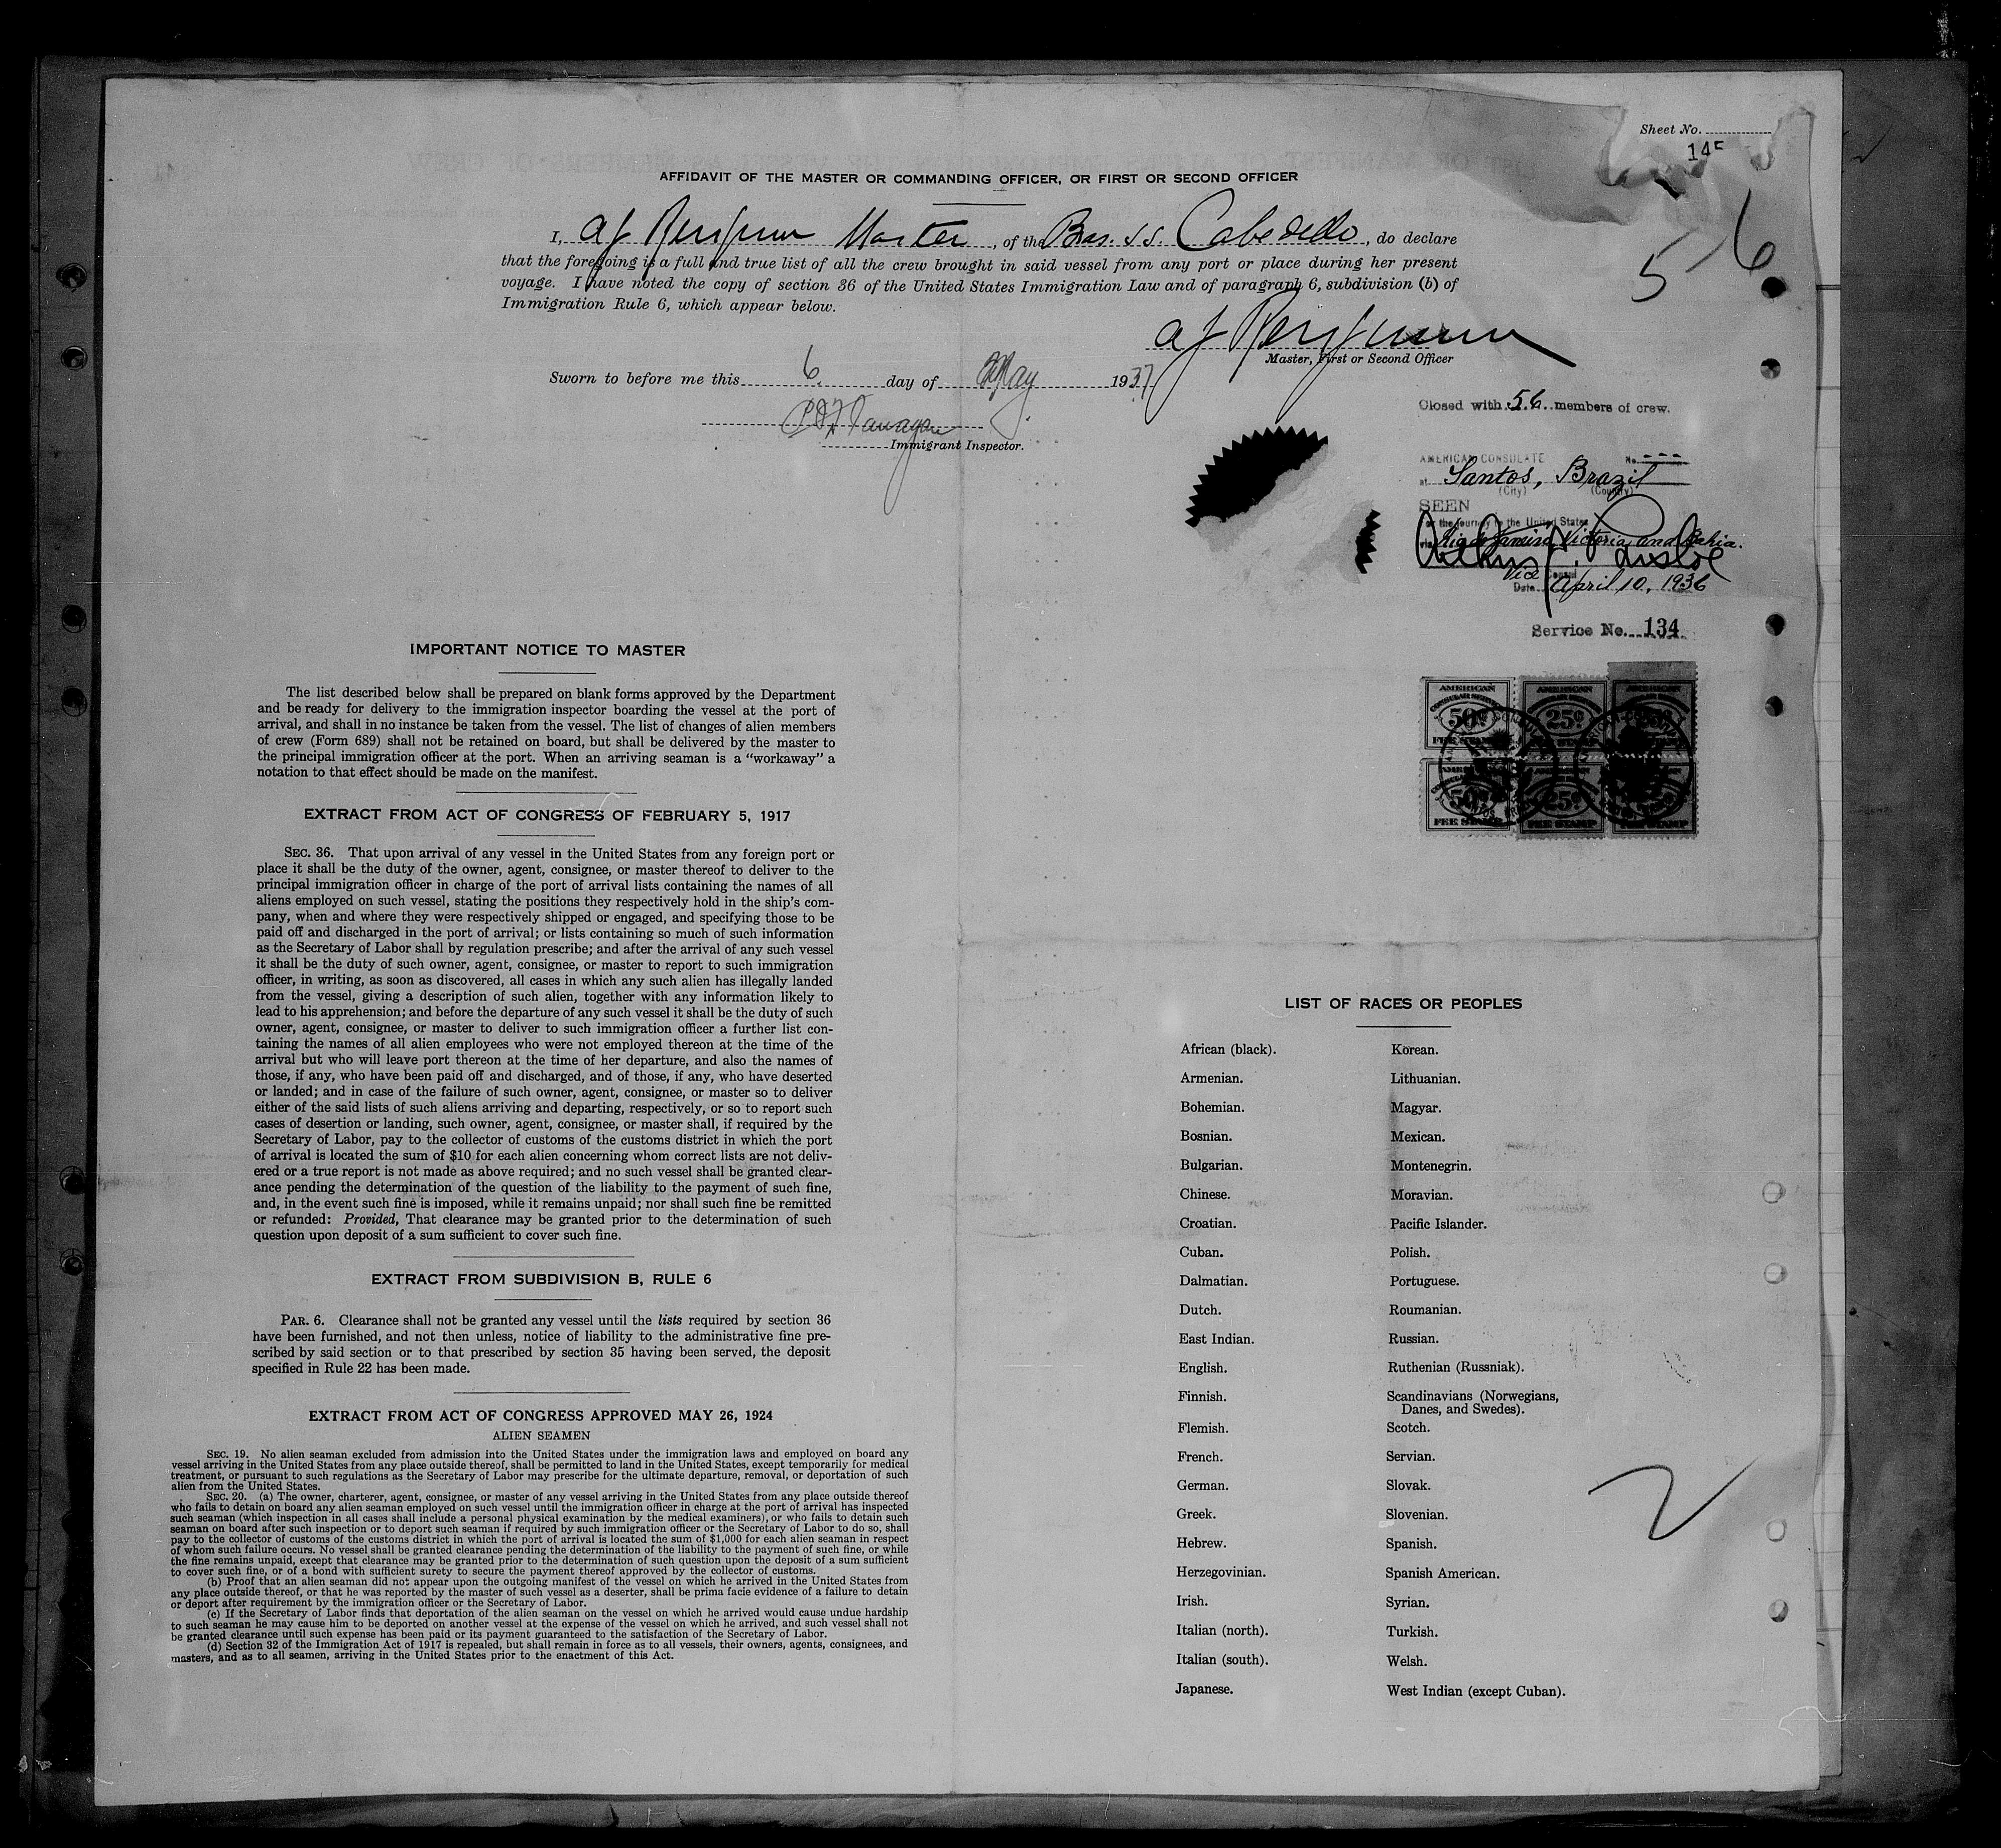 Sheet No.
145
AFFIDAVIT OF THE MASTER OR COMMANDING OFFICER, OR FIRST OR SECOND OFFICER
I, Master, of the Bras. SS. Cabedello, do declare
that the foregoing is a full and true list of all the crew brought in said vessel from any port or place during her present
voyage. I have noted the copy of section 36 of the United States Immigration Law and of paragraph 6, subdivision (b) of
Immigration Rule 6, which appear below.
56
Master, First or Second Officer
Sworn to before me this 6. day of May 1937
Immigrant Inspector.
Closed with 56 members of crew.
AMERICAN CONSULATE No. ---
at Santos, Brazil
(City) (Country)
SEEN
For the journey to the United States
via Rio de Janeiro, Victoria, and Bahia.
Vice Consul
Date April 10, 1936
Service No. 134
AMERICAN
CONSULAR SERVICE
50¢
FEE STAMP
AMERICAN
25¢
FEE STAMP
AMERICAN
50¢
FEE STAMP
25¢
FEE STAMP
FEE STAMP
IMPORTANT NOTICE TO MASTER
The list described below shall be prepared on blank forms approved by the Department
and be ready for delivery to the immigration inspector boarding the vessel at the port of
arrival, and shall in no instance be taken from the vessel. The list of changes of alien members
of crew (Form 689) shall not be retained on board, but shall be delivered by the master to
the principal immigration officer at the port. When an arriving seaman is a "workaway" a
notation to that effect should be made on the manifest.
EXTRACT FROM ACT OF CONGRESS OF FEBRUARY 5, 1917
SEC. 36. That upon arrival of any vessel in the United States from any foreign port or
place it shall be the duty of the owner, agent, consignee, or master thereof to deliver to the
principal immigration officer in charge of the port of arrival lists containing the names of all
aliens employed on such vessel, stating the positions they respectively hold in the ship's com-
pany, when and where they were respectively shipped or engaged, and specifying those to be
paid off and discharged in the port of arrival; or lists containing so much of such information
as the Secretary of Labor shall by regulation prescribe; and after the arrival of any such vessel
it shall be the duty of such owner, agent, consignee, or master to report to such immigration
officer, in writing, as soon as discovered, all cases in which any such alien has illegally landed
from the vessel, giving a description of such alien, together with any information likely to
lead to his apprehension; and before the departure of any such vessel it shall be the duty of such
owner, agent, consignee, or master to deliver to such immigration officer a further list con-
taining the names of all alien employees who were not employed thereon at the time of the
arrival but who will leave port thereon at the time of her departure, and also the names of
those, if any, who have been paid off and discharged, and of those, if any, who have deserted
or landed; and in case of the failure of such owner, agent, consignee, or master so to deliver
either of the said lists of such aliens arriving and departing, respectively, or so to report such
cases of desertion or landing, such owner, agent, consignee, or master shall, if required by the
Secretary of Labor, pay to the collector of customs of the customs district in which the port
of arrival is located the sum of $10 for each alien concerning whom correct lists are not deliv-
ered or a true report is not made as above required; and no such vessel shall be granted clear-
ance pending the determination of the question of the liability to the payment of such fine,
and, in the event such fine is imposed, while it remains unpaid; nor shall such fine be remitted
or refunded: Provided, That clearance may be granted prior to the determination of such
question upon deposit of a sum sufficient to cover such fine.
EXTRACT FROM SUBDIVISION B, RULE 6
PAR. 6. Clearance shall not be granted any vessel until the lists required by section 36
have been furnished, and not then unless, notice of liability to the administrative fine pre-
scribed by said section or to that prescribed by section 35 having been served, the deposit
specified in Rule 22 has been made.
EXTRACT FROM ACT OF CONGRESS APPROVED MAY 26, 1924
ALIEN SEAMEN
SEC. 19. No alien seaman excluded from admission into the United States under the immigration laws and employed on board any
vessel arriving in the United States from any place outside thereof, shall be permitted to land in the United States, except temporarily for medical
treatment, or pursuant to such regulations as the Secretary of Labor may prescribe for the ultimate departure, removal, or deportation of such
alien from the United States.
SEC. 20. (a) The owner, charterer, agent, consignee, or master of any vessel arriving in the United States from any place outside thereof
who fails to detain on board any alien seaman employed on such vessel until the immigration officer in charge at the port of arrival has inspected
such seaman (which inspection in all cases shall include a personal physical examination by the medical examiners), or who fails to detain such
seaman on board after such inspection or to deport such seaman if required by such immigration officer or the Secretary of Labor to do so, shall
pay to the collector of customs of the customs district in which the port of arrival is located the sum of $1,000 for each alien seaman in respect
of whom such failure occurs. No vessel shall be granted clearance pending the determination of the liability to the payment of such fine, or while
the fine remains unpaid, except that clearance may be granted prior to the determination of such question upon the deposit of a sum sufficient
to cover such fine, or of a bond with sufficient surety to secure the payment thereof approved by the collector of customs.
(b) Proof that an alien seaman did not appear upon the outgoing manifest of the vessel on which he arrived in the United States from
any place outside thereof, or that he was reported by the master of such vessel as a deserter, shall be prima facie evidence of a failure to detain
or deport after requirement by the immigration officer or the Secretary of Labor.
(c) If the Secretary of Labor finds that deportation of the alien seaman on the vessel on which he arrived would cause undue hardship
to such seaman he may cause him to be deported on another vessel at the expense of the vessel on which he arrived, and such vessel shall not
be granted clearance until such expense has been paid or its payment guaranteed to the satisfaction of the Secretary of Labor.
(d) Section 32 of the Immigration Act of 1917 is repealed, but shall remain in force as to all vessels, their owners, agents, consignees, and
masters, and as to all seamen, arriving in the United States prior to the enactment of this Act.
LIST OF RACES OR PEOPLES
African (black). Korean.
Armenian. Lithuanian.
Bohemian. Magyar.
Bosnian. Mexican.
Bulgarian. Montenegrin.
Chinese. Moravian.
Croatian. Pacific Islander.
Cuban. Polish.
Dalmatian. Portuguese.
Dutch. Roumanian.
East Indian. Russian.
English. Ruthenian (Russniak).
Finnish. Scandinavians (Norwegians,
Danes, and Swedes).
Flemish. Scotch.
French. Servian.
German. Slovak.
Greek. Slovenian.
Hebrew. Spanish.
Herzegovinian. Spanish American.
Irish. Syrian.
Italian (north). Turkish.
Italian (south). Welsh.
Japanese. West Indian (except Cuban).
2